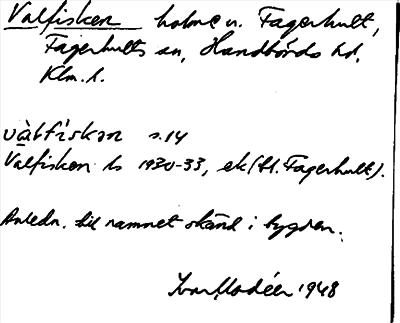 Valfisken holme u. Fagerhult,
Fagerhults sn, Handbörds hd.
Klm. l.
vàlfìskən s. 14
Valfisken ls 1930-33, ek (St. Fagerhult).
Anledn. till namnet okänd i bygden.
Ivar Modéer 1948